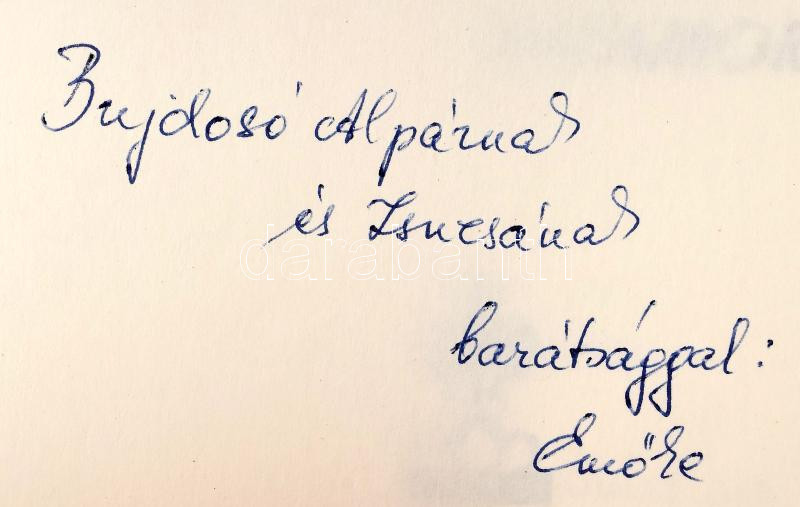 Bujdosó Alpárnak
és Zsuzsának
barátsággal:
Emőke
darabanth